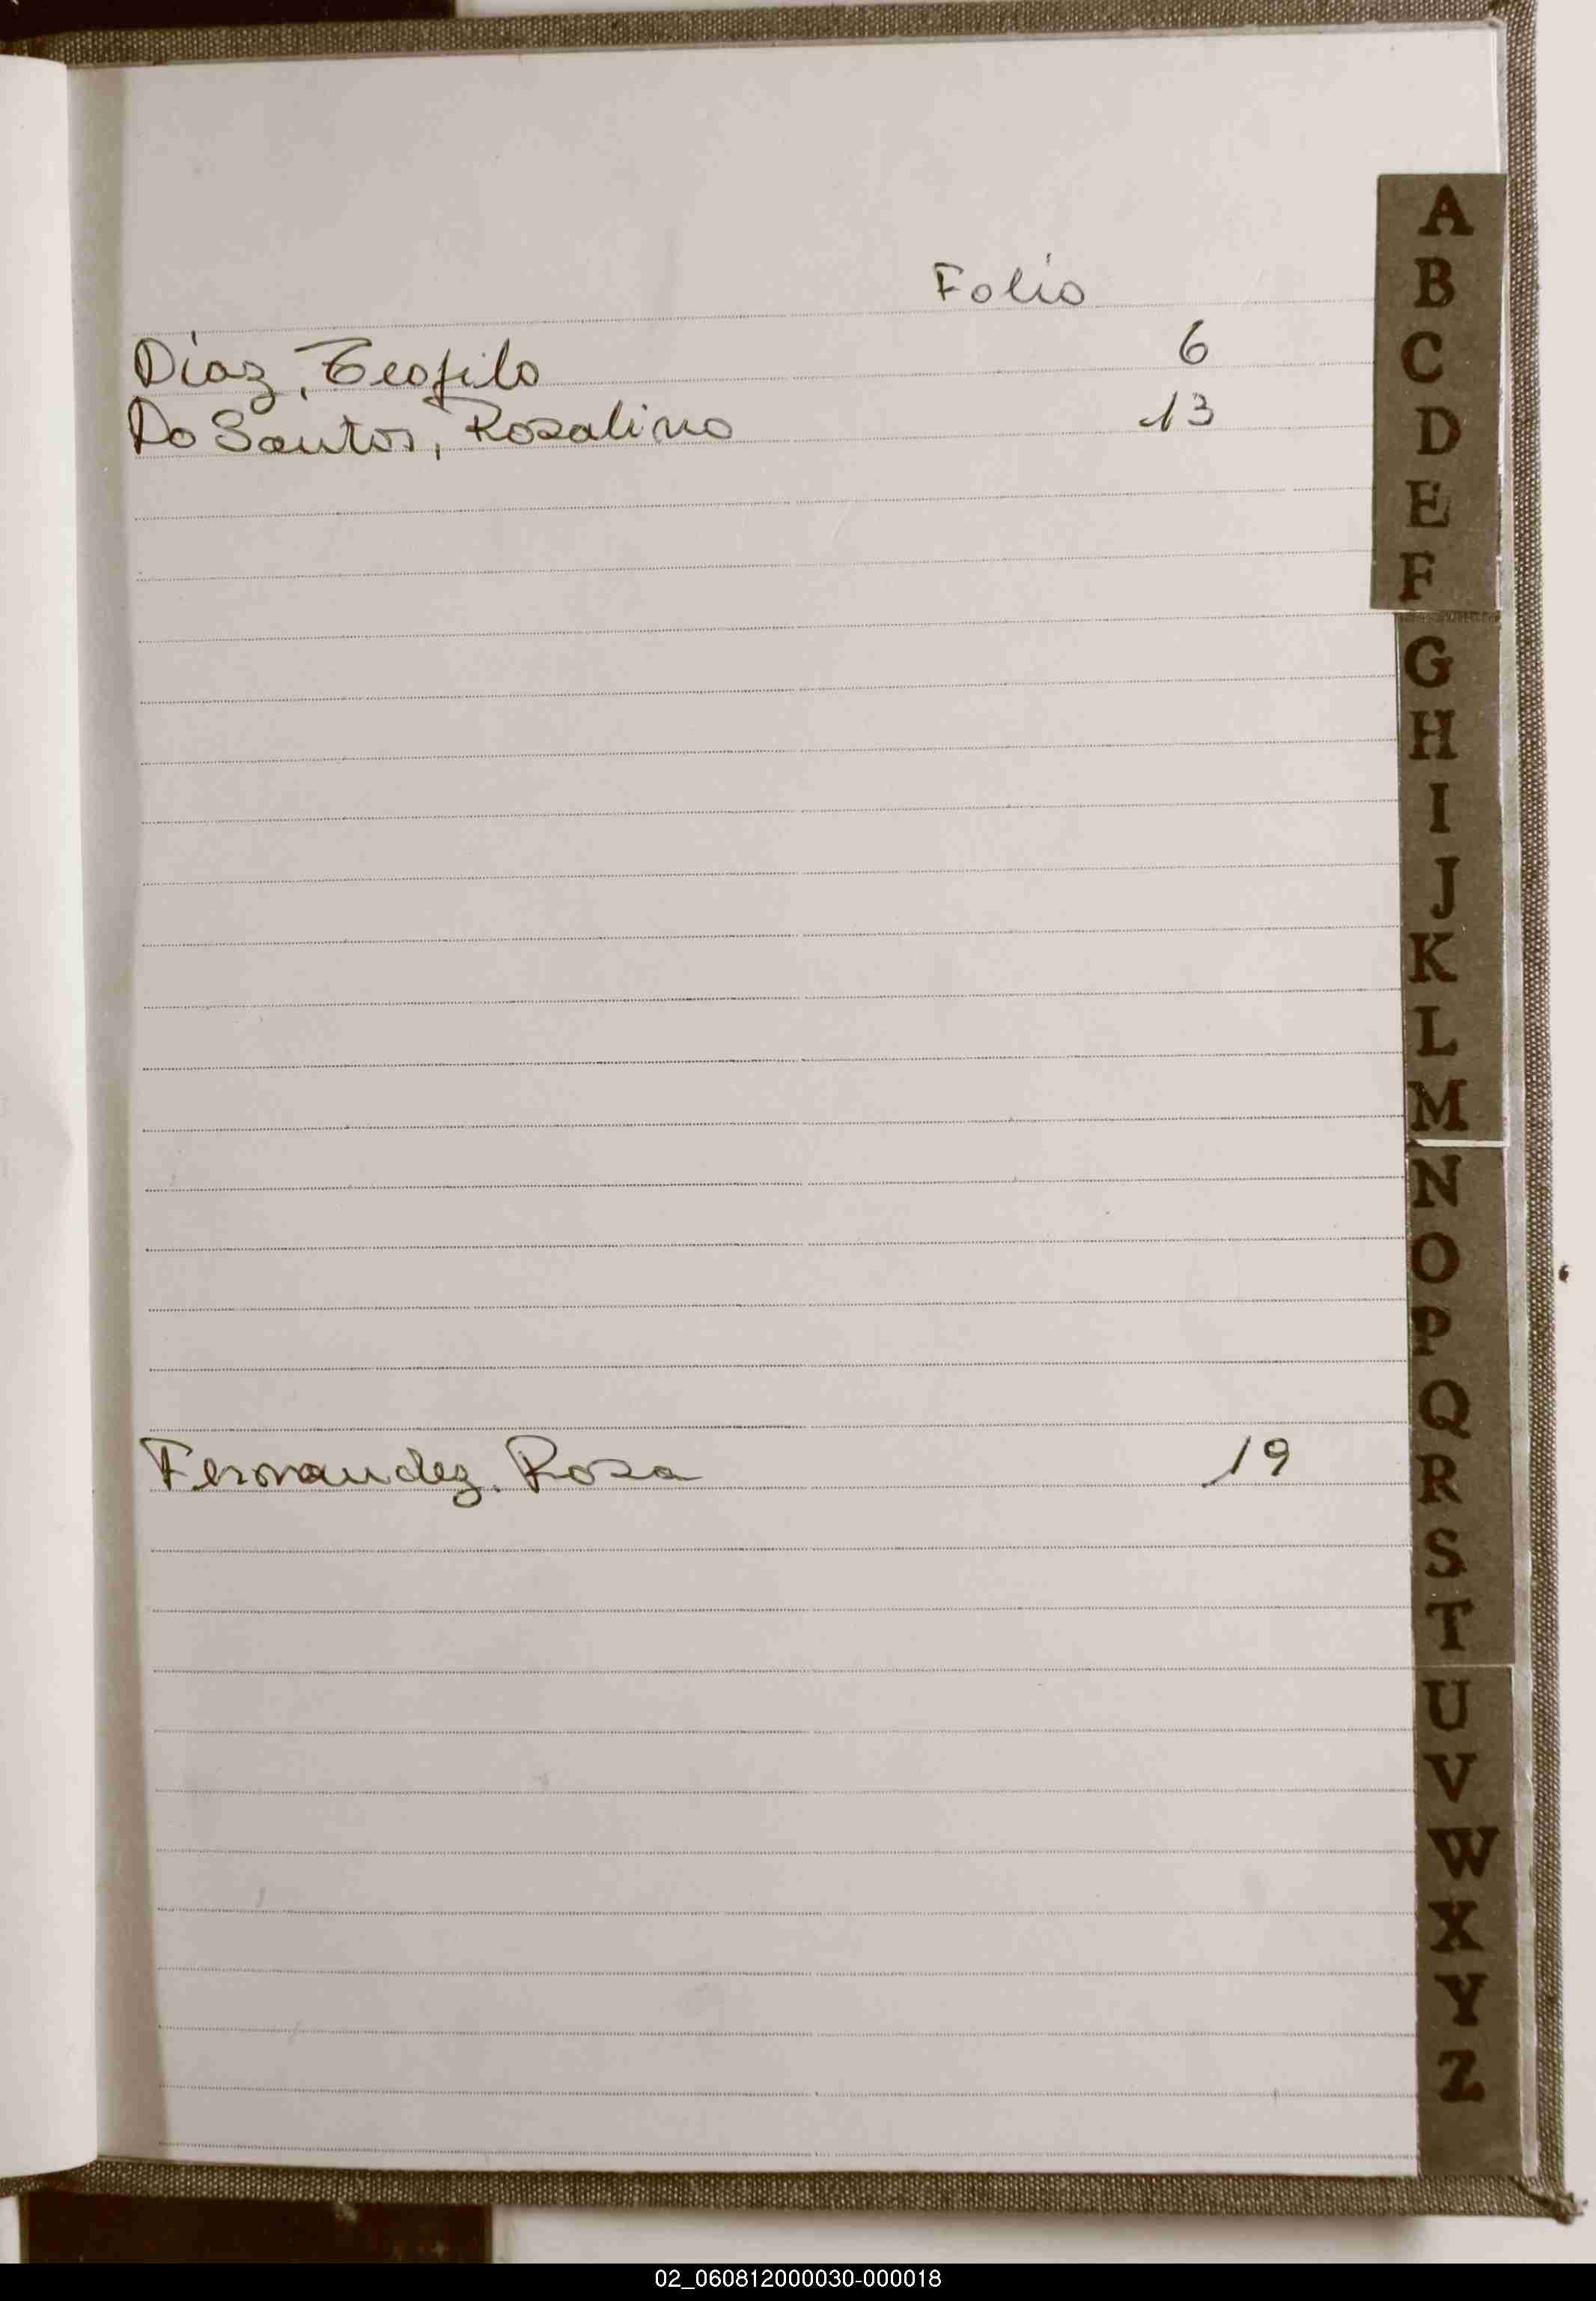 Folio
Díaz, Teofilo 6
Do Santos, Rosalino 13
Fernandez, Rosa 19
A
B
C
D
E
F
G
H
I
J
K
L
M
N
O
P
Q
R
S
T
U
V
W
X
Y
Z
02_060812000030-000018